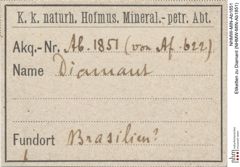 K. k. naturh. Hofmus. Mineral.- petr. Abt.
Akq.- Nr. Ab. 1851 (von Af. 622)
Name Diamant
Fundort Brasilien?
NHMW-MIN-Ab1851
Etiketten zu Diamant (NHMW-MIN-Ab1851)
nhm